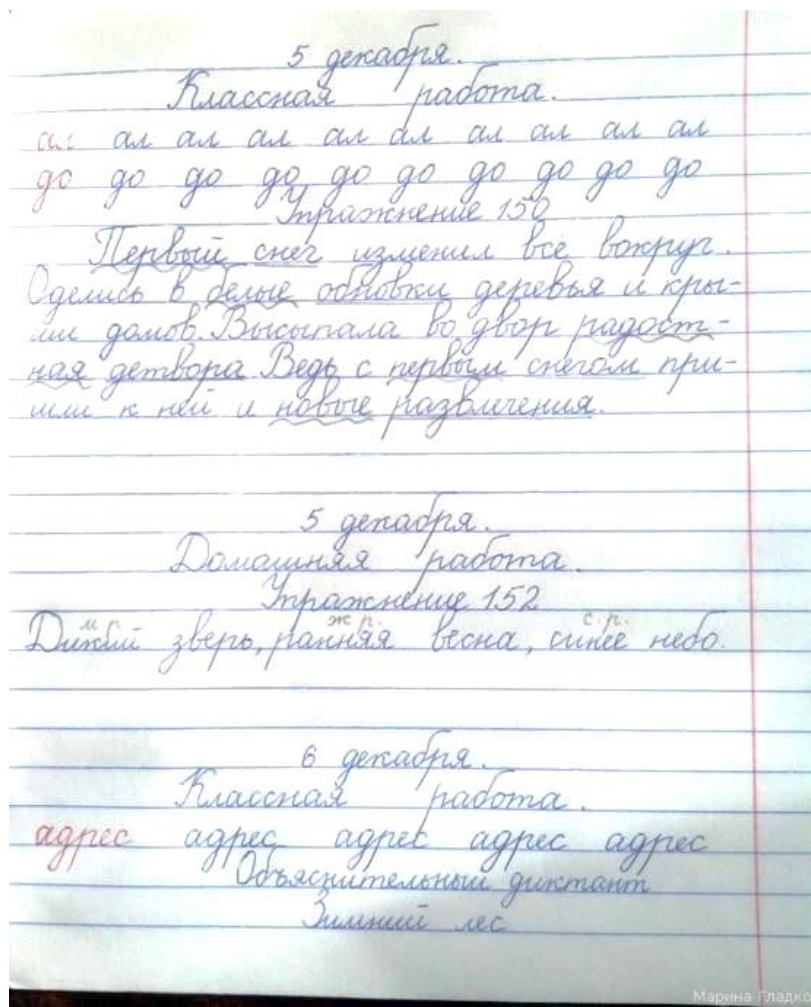 5 декабря.
Классная работа.
ал ал ал ал ал ал ал ал ал ал
до до до до до до до до до до
Упражнение 150
Первый снег изменил все вокруг.
Оделись в белые обновки деревья и кры-
ши домов. Высыпала во двор радост-
ная детвора Ведь с первым снегом при-
шли к ней и новые развлечения.
5 декабря.
Домашняя работа.
Упражнение 152
м р. ж р. с. р.
Дикий зверь, ранняя весна, синее небо.
6 декабря.
Классная работа.
адрес адрес адрес адрес адрес
Объяснительный диктант
Зимний лес
Марина Гладко